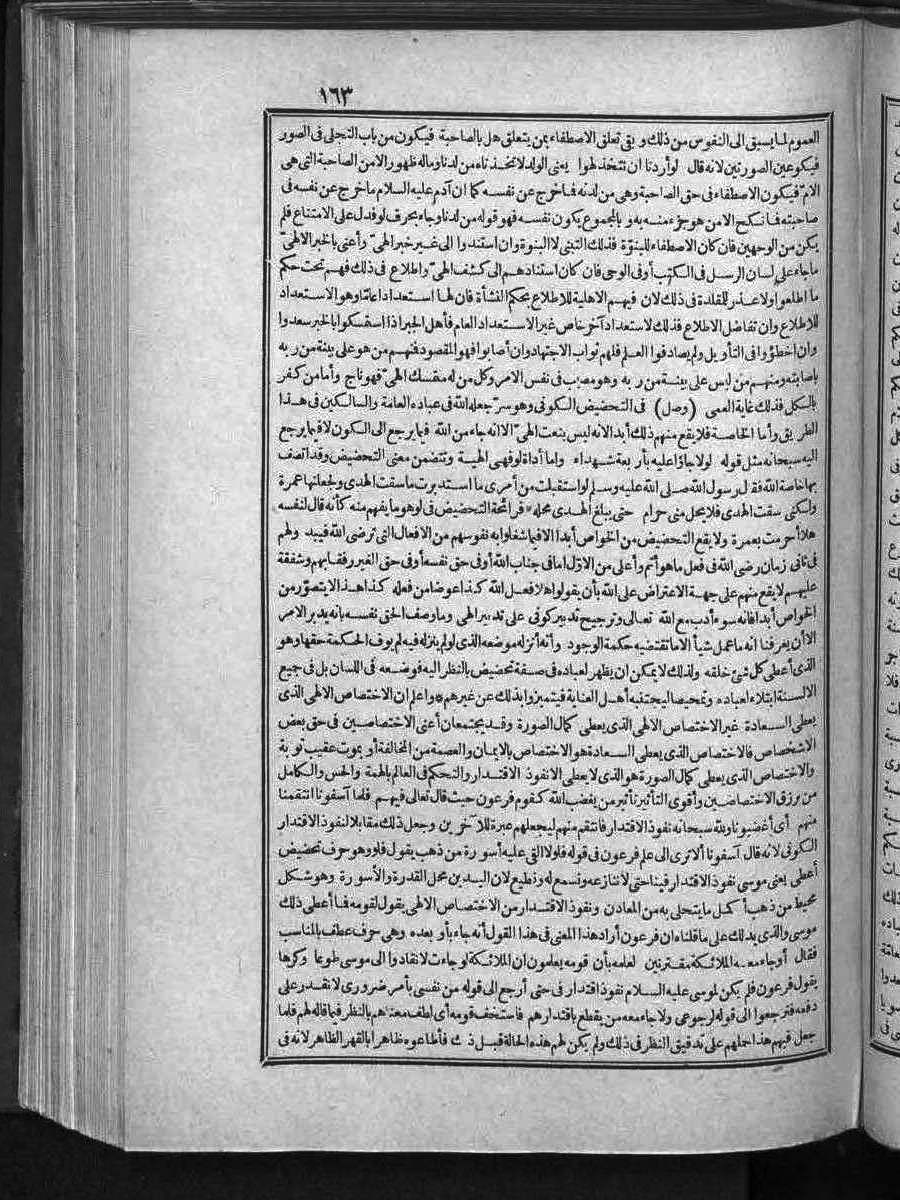 ١٦٣
العموم لما يسبق الى النفوس من ذلك وبقي تعلق الاصطفاء بمن يتعلق هل بالصاحبة فيكون من باب التجلى فى الصور
فيكوعين الصورتين لانه قال لو أردنا ان نتخذ لهوا يعنى الولد لاتخذناه من لدنا وماله ظهور الا من الصاحبة التى هى
الامّ فيكون الاصطفاء فى حق الصاحبة وهى من لدنه فاخرج عن نفسه كما ان آدم عليه السلام ماخرج عن نفسه فى
صاحبته فانكح الامن هو جزء منه به وبالمجموع يكون نفسه فهو قوله من لدنا وجاء بحرف لو فدل على الامتناع فلم
يكن من الوجهين فان كان الاصطفاء للبنوّة فذلك التبنى لا البنوة وان استندوا الى غير خبر الهىّ وأعنى بالخبر الالهىّ
ماجاء على لسان الرسل فى الكتب أو فى الوحى فان كان استنادهم الى كشف الهىّ واطلاع فى ذلك فهم تحت حكم
ما اطلعوا ولا عذر للمقلدة فى ذلك لان فيهم الاهلية للاطلاع بحكم النشأة فان لها استعدادا عامّا وهو الاستعداد
للاطلاع وان تفاضل الاطلاع فذلك لاستعداد آخر خاص غير الاستعداد العام فأهل الخبر اذا استمسكوا بالخبر سعدوا
وان اخطؤا فى التأويل ولم يصادفوا العلم فلهم ثواب الاجتهاد وان أصابوا فهو المقصود فنهم من هو على بينة من ربه
باصابته ومنهم من ليس على بينة من ربه وهو مصيب فى نفس الامر وكل من له متمسك الهىّ فهو ناج وأما من كفر
بالكل فذلك غاية العمى (وصل) فى التحضيض الكونى وهو سرّ جعله الله فى عباده العامة والسالكين فى هذا
الطريق وأما الخاصة فلا يقع منهم ذلك أبدا لانه ليس بنعت الهىّ الا انه جاء من الله فيما يرجع الى الكون لا فيما يرجع
اليه سبحانه مثل قوله لولا جاؤا عليه بأربعة شهداء واما أداة لو فهى الهية وتتضمن معنى التحضيض وقد اتصف
بها خاصة الله فقال رسول الله صلى الله عليه وسلم لو استقبلت من أمرى ما استدبرت ما سقت الهدى ولجعلتها عمرة
ولكنى سقت الهدى فلا يحل منى حرام حتى يبلغ الهدى محله فرائحة التحضيض فى لو هو ما يفهم منه كأنه قال لنفسه
هلا أحرمت بعمرة ولا يقع التحضيض من الخواص أبدا الا فيما شغلوا به نفوسهم من الافعال التى ترضى الله فيبدو لهم
فى ثانى زمان رضى الله فى فعل ما هو أتم وأعلى من الاوّل اما فى جناب الله أو فى حق نفسه أو فى حق الغير رفقا بهم وشفقة
عليهم لا يقع منهم على جهة الاعتراض على الله بأن يقولوا هلا فعل الله كذا عوضا من فعله كذا هذا لا يتصوّر من
الخواص أبدا فانه سوء أدب مع الله تعالى وترجيح تدبير كونى على تدبير الهى وما وصف الحق نفسه بأنه يدبر الامر
الا أن يعرفنا انه ما عمل شيأ الا ما تقتضيه حكمة الوجود وأنه أنزله موضعه الذى لو لم ينزله فيه لم يوف الحكمة حقها وهو
الذى أعطى كل شئ خلقه ولذلك لا يمكن ان يظهر لعباده فى صفة تحضيض بالنظر اليه فوضعه فى اللسان بل فى جميع
الالسنة ابتلاء لعباده وتمحيصا ليجتنبه أهل العناية فيتميزوا بذلك عن غيرهم واعلم ان الاختصاص الالهى الذى
يعطى السعادة غير الاختصاص الالهى الذى يعطى كمال الصورة وقد يجتمعان أعنى الاختصاصين فى حق بعض
الاشخاص فالاختصاص الذى يعطى السعادة هو الاختصاص بالايمان والعصمة من المخالفة أو بموت عقيب توبة
والاختصاص الذى يعطى كمال الصورة هو الذى لا يعطى الا نفوذ الاقتدار والتحكم فى العالم بالهمة والحس والكامل
من يرزق الاختصاصين وأقوى التأثير تأثير من يغضب الله كقوم فرعون حيث قال تعالى فيهم فلما آسفونا انتقمنا
منهم أى أغضبونا ولله سبحانه نفوذ الاقتدار فانتقم منهم ليجعلهم عبرة للآخرين وجعل ذلك مقابلا لنفوذ الاقتدار
الكونى لانه قال آسفونا ألا ترى الى علم فرعون فى قوله فلولا القى عليه أسورة من ذهب يقول فلو وهو حرف تحضيض
أعطى يعنى موسى نفوذ الاقتدار فينا حتى لا ننازعه ونسمع له ونطيع لان اليدين محل القدرة والأسورة وهو شكل
محيط من ذهب أكمل ما يتحلى به من المعادن ونفوذ الاقتدار من الاختصاص الالهى يقول لقومه فما أعطى ذلك
موسى والذى يدلك على ما قلناه ان فرعون أراد هذا المعنى فى هذا القول أنه جاء بأو بعده وهى حرف عطف بالمناسب
فقال أو جاء معه الملائكة مقترنين لعلمه بأن قومه يعلمون ان الملائكة لو جاءت لانقادوا الى موسى طوعا وكرها
يقول فرعون فلم يكن لموسى عليه السلام نفوذ اقتدار فى حتى أرجع الى قوله من نفسى بأمر ضرورى لا نقدر على
دفعه فترجعوا الى قوله لرجوعى ولا جاء معه من يقطع باقتدارهم فاستخف قومه أى لطف معناهم بالنظر فيما قاله لهم فلما
جعل فيهم هذا حملهم على تدقيق النظر فى ذلك ولم يكن لهم هذه الحالة قبل ذلك فأطاعوه ظاهرا بالقهر الظاهر لانه فى